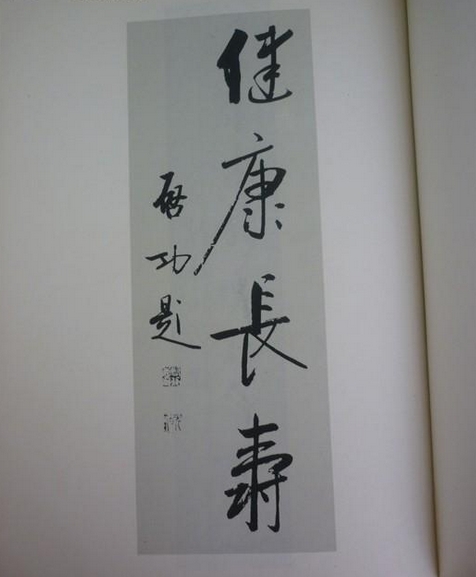 健康長壽
啟功題